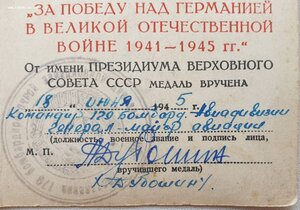 „ЗА ПОБЕДУ НАД ГЕРМАНИЕЙ
В ВЕЛИКОЙ ОТЕЧЕСТВЕННОЙ
ВОЙНЕ 1941—1945 гг."
От имени ПРЕЗИДИУМА ВЕРХОВНОГО
СОВЕТА СССР МЕДАЛЬ ВРУЧЕНА
18 июля 1945
Командир бомбард. Авиадивизии
генерал майор авиации
(должность, военное звание и подпись лица,
М. П.
вручившего медаль)